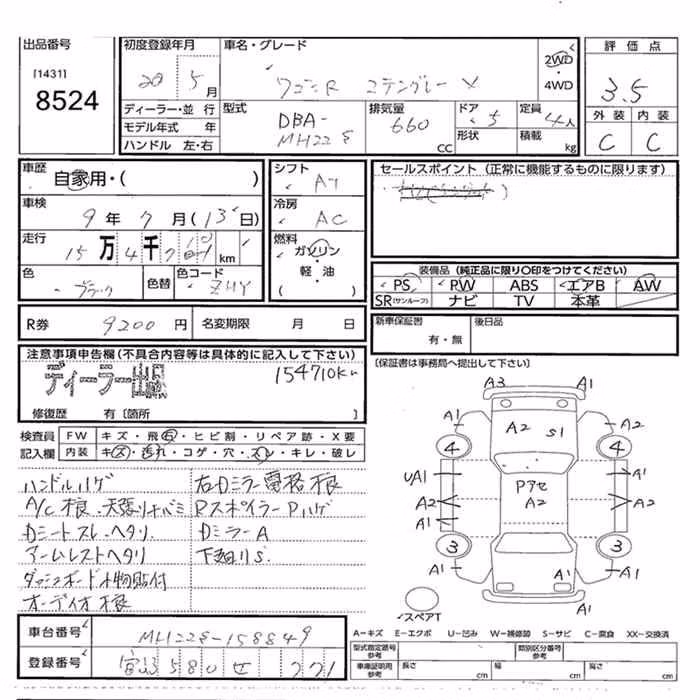 出品番号
[1431]
8524
初度登録年月
20 5月
車名・グレード
ワゴンR スティングレー X
2WD
・
4WD
評価点
3.5
外装 内装
C C
ディーラー・並行
モデル年式 年
ハンドル 左・右
型式
DBA-
MH22S
排気量
660
CC
ドア
5
形状
定員
4人
積載
kg
車歴
自家用・( )
車検
9年7月(13日)
走行
15万4千7
km
色
ブラック
色替
色コード
ZHY
シフト
AT
冷房
AC
燃料
ガソリン
・
軽・油
( )
セールスポイント (正常に機能するものに限ります)
装備品 (純正品に限り〇印をつけてください)
PS PW ABS エアB AW
SR(サンルーフ) ナビ TV 本革
R券 9200円 名変期限 月 日
新車保証書
有・無
後日品
(保証書は事務局へ提出して下さい)
注意事項申告欄(不具合内容等は具体的に記入して下さい)
ディーラー出品
154710km
修復歴 有 [箇所 ]
検査員
記入欄
FW キズ・飛石・ヒビ割・リペア跡・X要
内装 キズ・汚れ・コゲ・穴・スレ・キレ・破レ
ハンドルハゲ
A/C根.天張リキバミ
Dシートスレ.ヘタリ.
アームレストヘタリ
ダッシュボード小物貼付
オーディオ根
右Dミラー電格根
RスポイラーPハゲ
DミラーA
下廻りS.
A3 A1
A1 A2 S1 A2
4 4
UA1 A1
Pアセ
A2 A2 A2
A1
3 3
A1 A1 A1
A1
スペアT
A-キズ E-エクボ U-凹ミ W-補修跡 S-サビ C-腐食 XX-交換済
車台番号
MH22S-158849
登録番号
580 せ 771
型式指定番号
参考
類別区分番号
参考
車庫証明用
参考
長さ cm
幅 cm
高さ cm